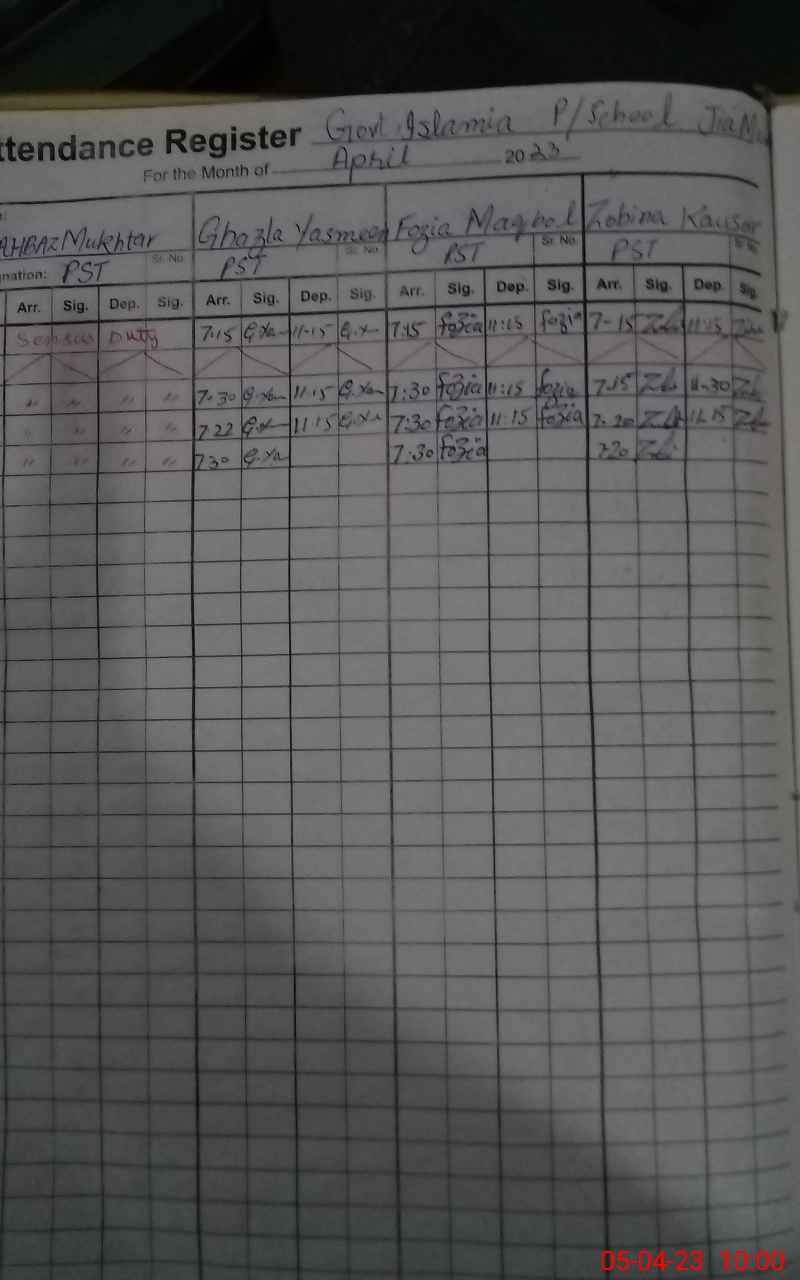 ttendance Register Govt. Islamia P/School Jia M
For the Month of April 2023
AHBAZ Mukhtar Ghazla Yasmeen Fozia Maqbol Zobina Kausar
Sr. No. Sr. No. Sr. No.
gnation: PST PST PST PST
Arr. Sig. Dep. Sig. Arr. Sig. Dep. Sig. Arr. Sig. Dep. Sig. Arr. Sig. Dep. Sig.
Sensus Duty 7.15 G.Ya 11-15 7:15 fozia 11:15 fozia 7-15 11:15
" " " " 7.30 11.15 7:30 fozia 11:15 fozia 7.15 11.30
" " " " 7.22 11.15 7:30 fozia 11.15 fozia 7.20 11.15
" " " " 7.30 G.Ya 7:30 fozia 7.20
05-04-23 10:00